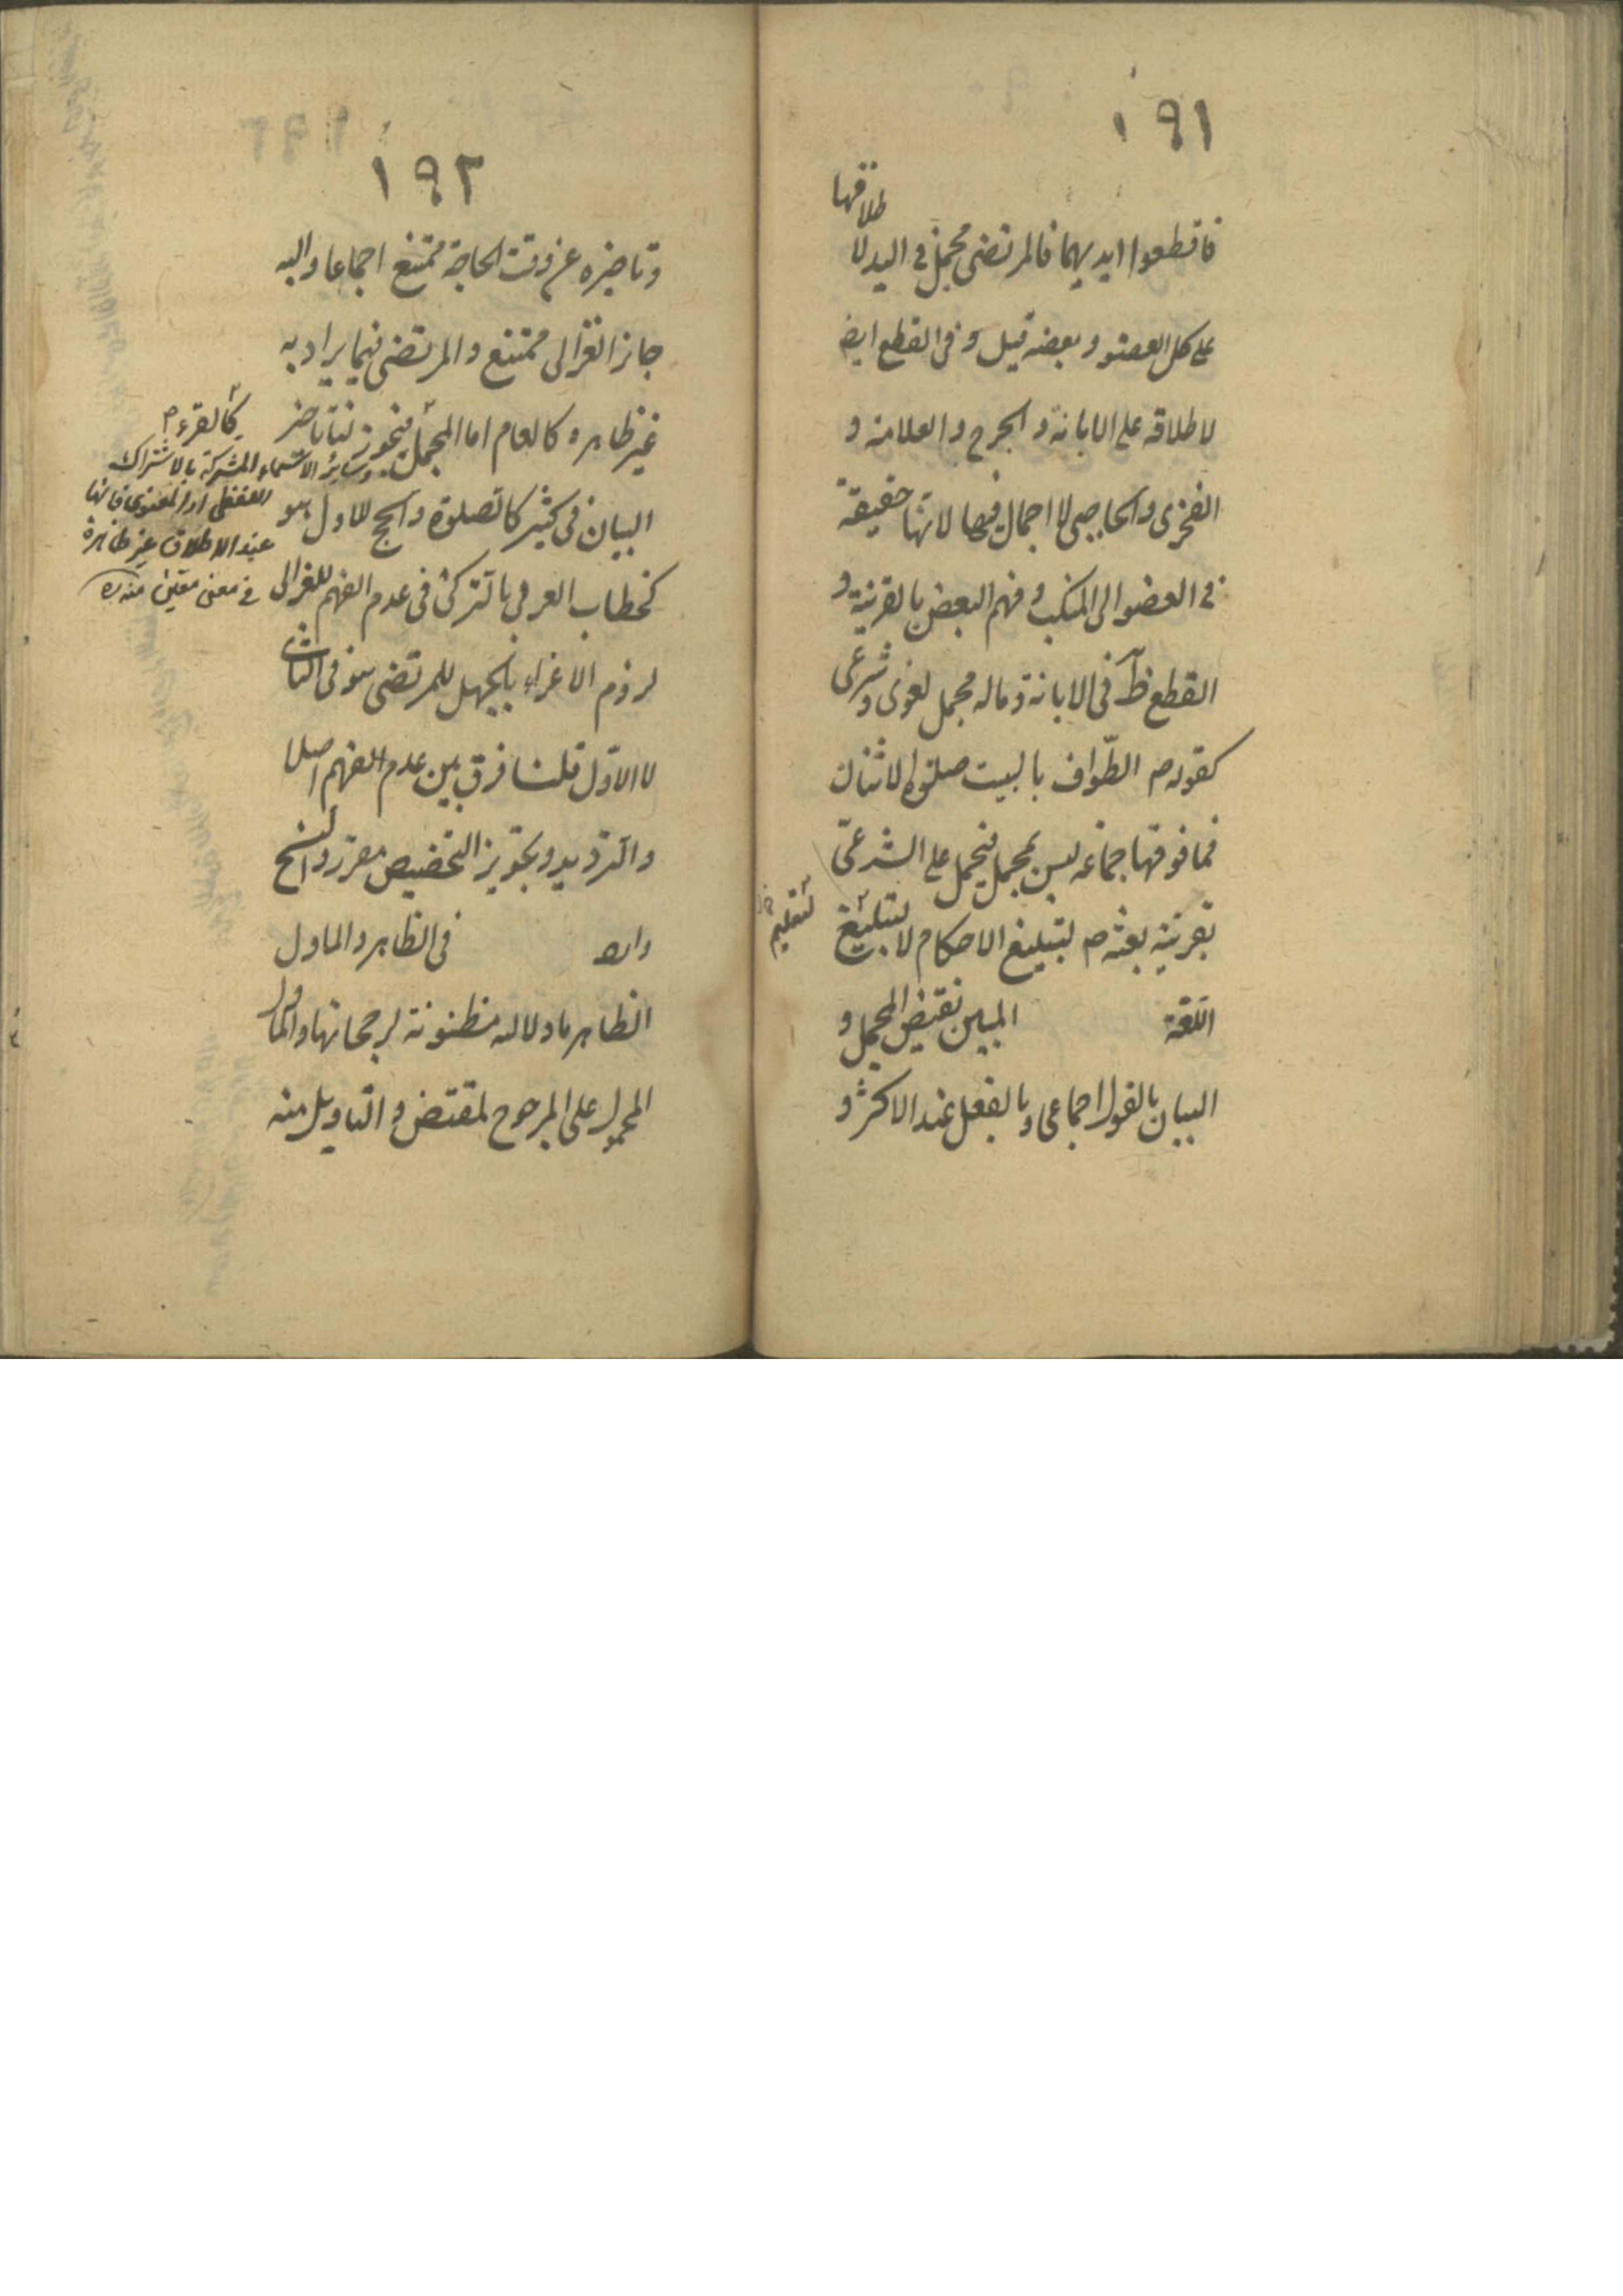 ١٩١
فاقطعوا ايديهما فالمرتضى مجمل في اليد لا
طلاقها
على كل العضو وبعضه قيل وفى القطع ايض
لاطلاقه على الابانة والجرح والعلامة و
الفخرى والحاجبى لا اجمال فيها لانها حقيقة
في العضو الى المنكب وفهم البعض بالقرينة و
القطع ظ في الابانة وماله مجمل لغوى وشرعى
كقوله ص الطّواف بالبيت صلوة الاثنان
فما فوقها جماعة ليس بمجمل فيحمل على الشرعىّ
بقرينة بعثه ص لتبليغ الاحكام لا لتبليغ
لتعليم
اللّغة المبين نقيض المجمل و
البيان بالقول اجماعى وبالفعل عند الاكثر و
١٩٢
وتاخيره عن وقت الحاجة ممتنع اجماعا واليه
جاز الغزالى ممتنع والمرتضى فيما يراد به
غير ظاهره كالعام اما المجمل فيجوز لنا تاخر
البيان في كثير كالصلوة والحج للاول هو
كخطاب العربى بالتركى فى عدم الفهم للغزالى
لزوم الاغراء بالجهل للمرتضى هو فى الثانى
لا الاوّل قلنا فرق بين عدم الفهم اصلا
والترديد وتجويز التخصيص مقرر والنسخ
وارد فى الظاهر والماول
الظاهر ما دلالته مظنونة لرجحانها والماول
المحمول على المرجوح لمقتض والتاويل منه
كالقرء
وسائر الاسماء المشتركة بالاشتراك
اللفظى او المعنوى فانها
عند الاطلاق غير ظاهرة
في معنى معين منه ره